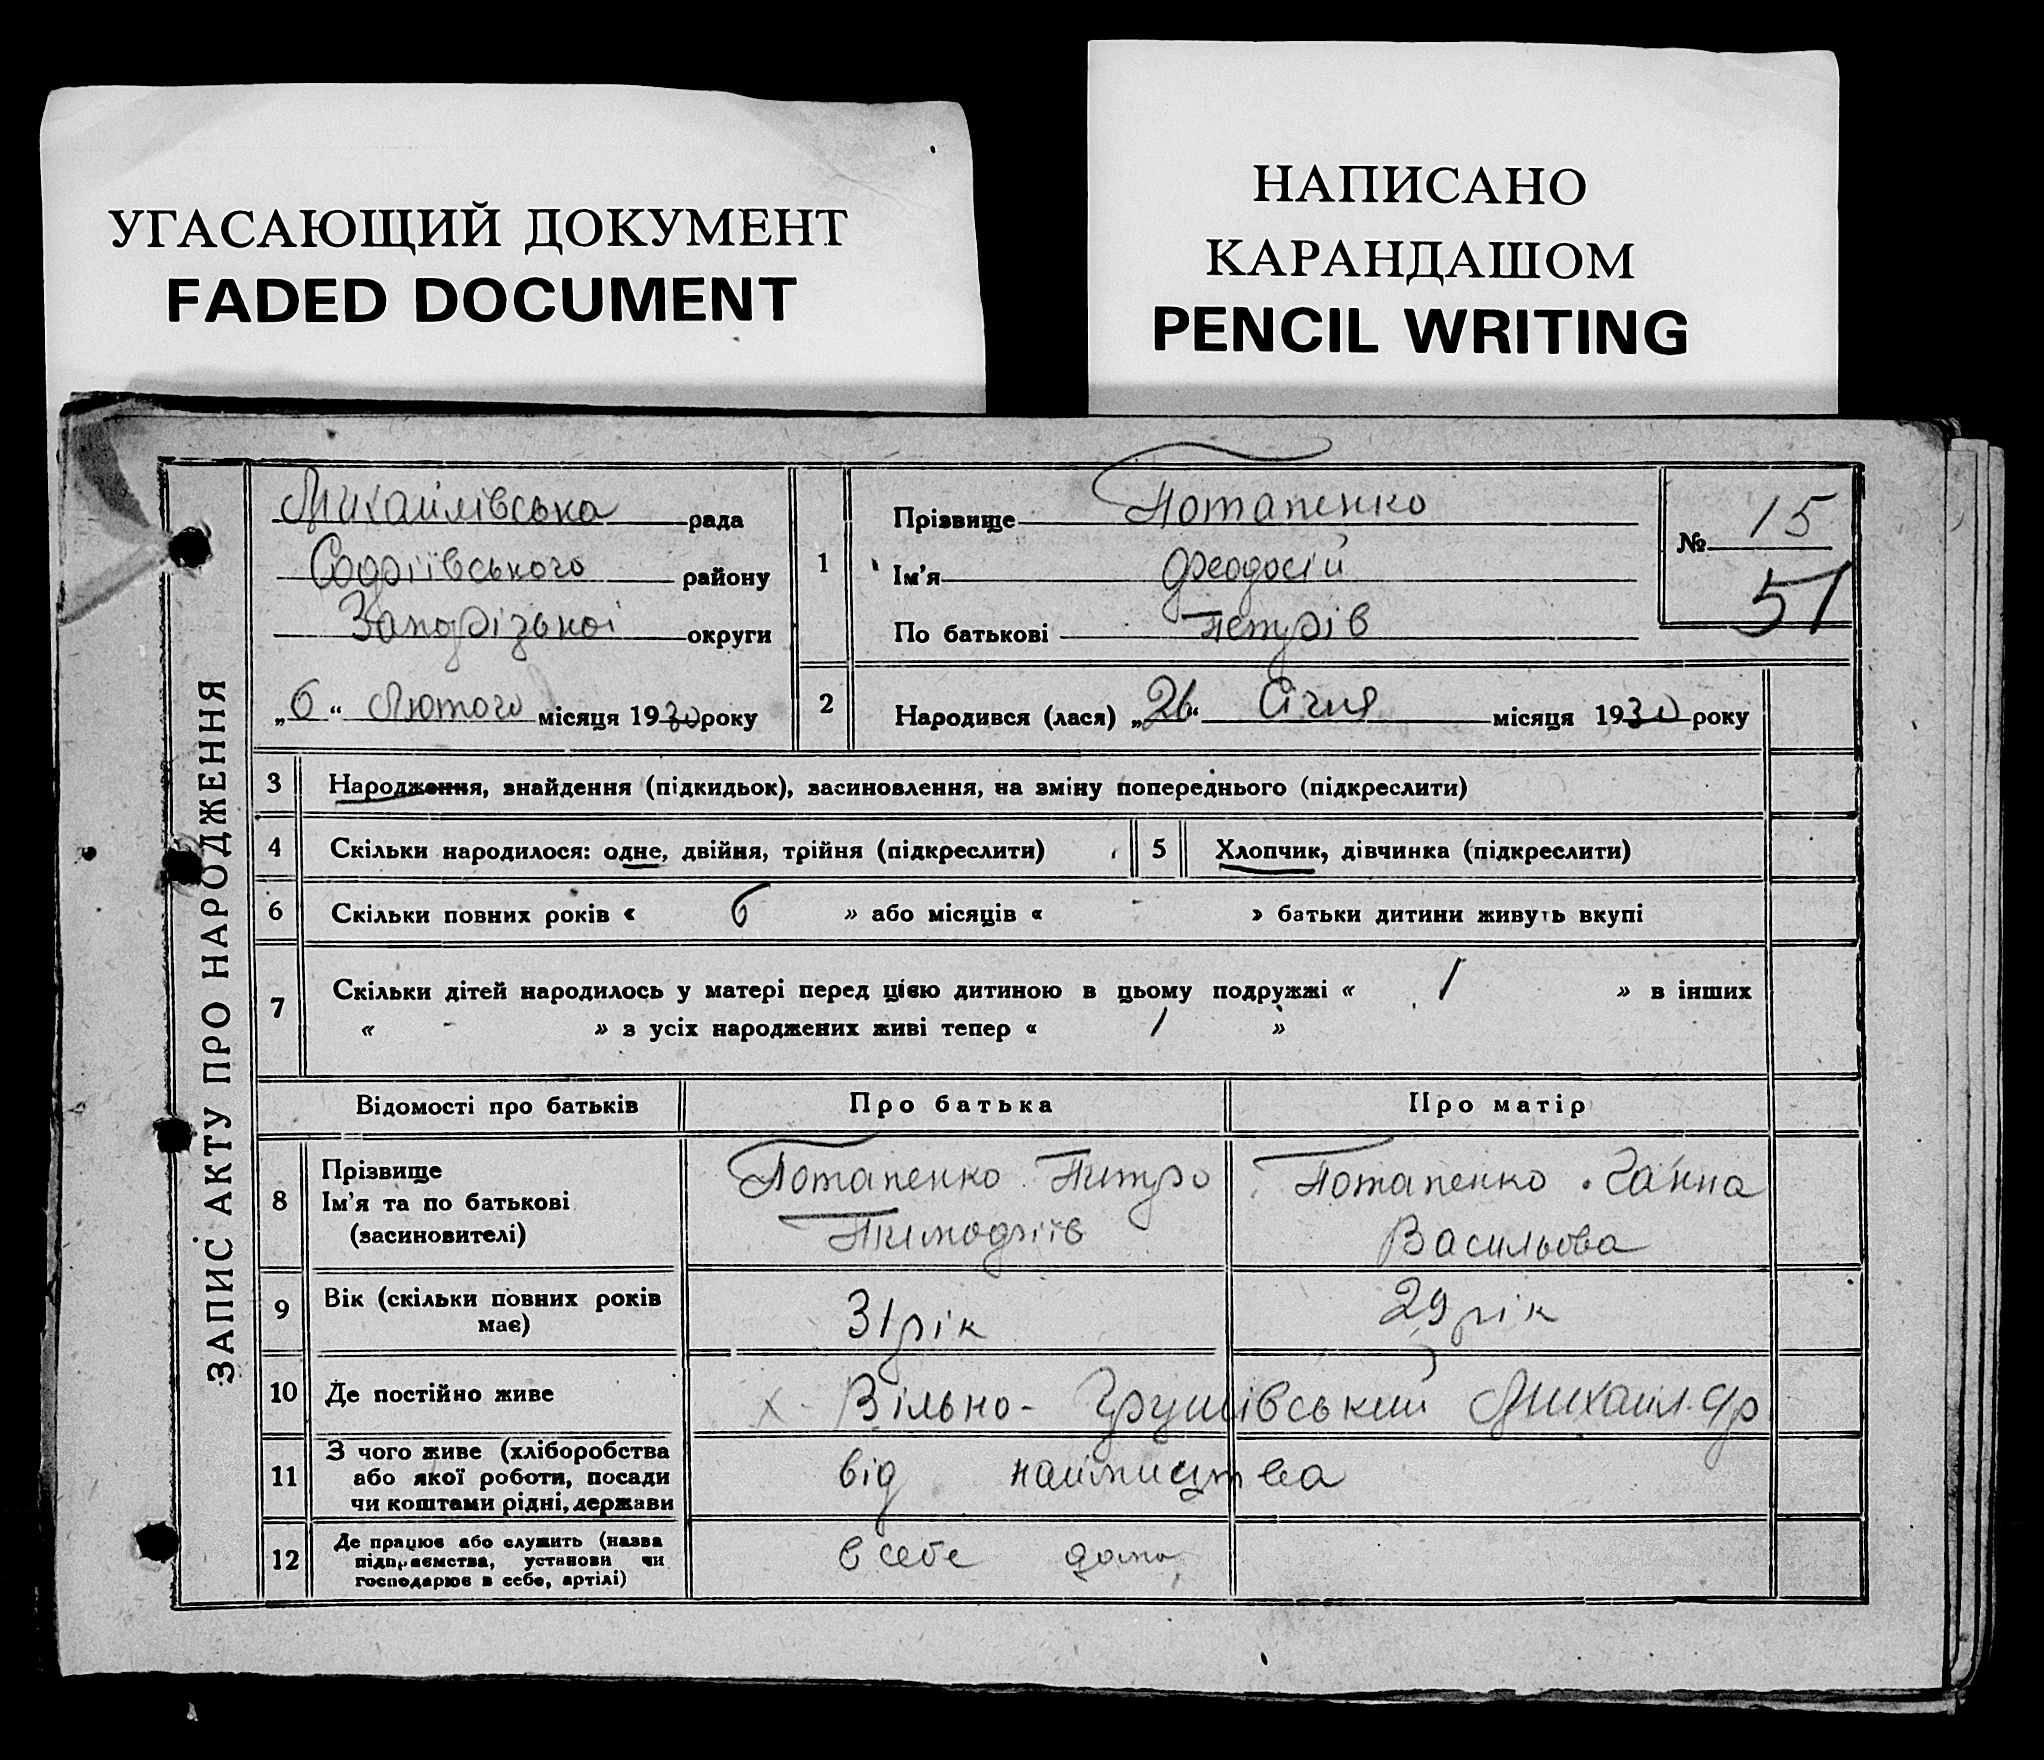 УГАСАЮЩИЙ ДОКУМЕНТ
FADED DOCUMENT
НАПИСАНО
КАРАНДАШОМ
PENCIL WRITING
ЗАПИС АКТУ ПРО НАРОДЖЕННЯ
Михайлівська рада
Софіївського району
Запорізької округи
„6“ Лютого місяця 1930 року
1
Прізвище Потапенко
Ім'я Феодосій
По батькові Петрів
№ 15
51
2 Народився (лася) „26“ Січня місяця 1930 року
3 Народження, знайдення (підкидьок), засиновлення, на зміну попереднього (підкреслити)
4 Скільки народилося: одне, двійня, трійня (підкреслити) 5 Хлопчик, дівчинка (підкреслити)
6 Скільки повних років « 6 » або місяців « - » батьки дитини живуть вкупі
7 Скільки дітей народилось у матері перед цією дитиною в цьому подружжі « 1 » в інших
« - » з усіх народжених живі тепер « 1 »
Відомості про батьків Про батька Про матір
8 Прізвище
Ім'я та по батькові
(засиновителі)
Потапенко Петро
Тимофіїв
Потапенко Ганна
Васильова
9 Вік (скільки повних років
має)
31 рік 29 рік
10 Де постійно живе х. Вільно-Грушівський Михайл.
11 З чого живе (хліборобства
або якої роботи, посади
чи коштами рідні, держави
від наймицтва
12 Де працює або служить (назва
підприємства, установи чи
господарює в себе, артілі)
в себе дома